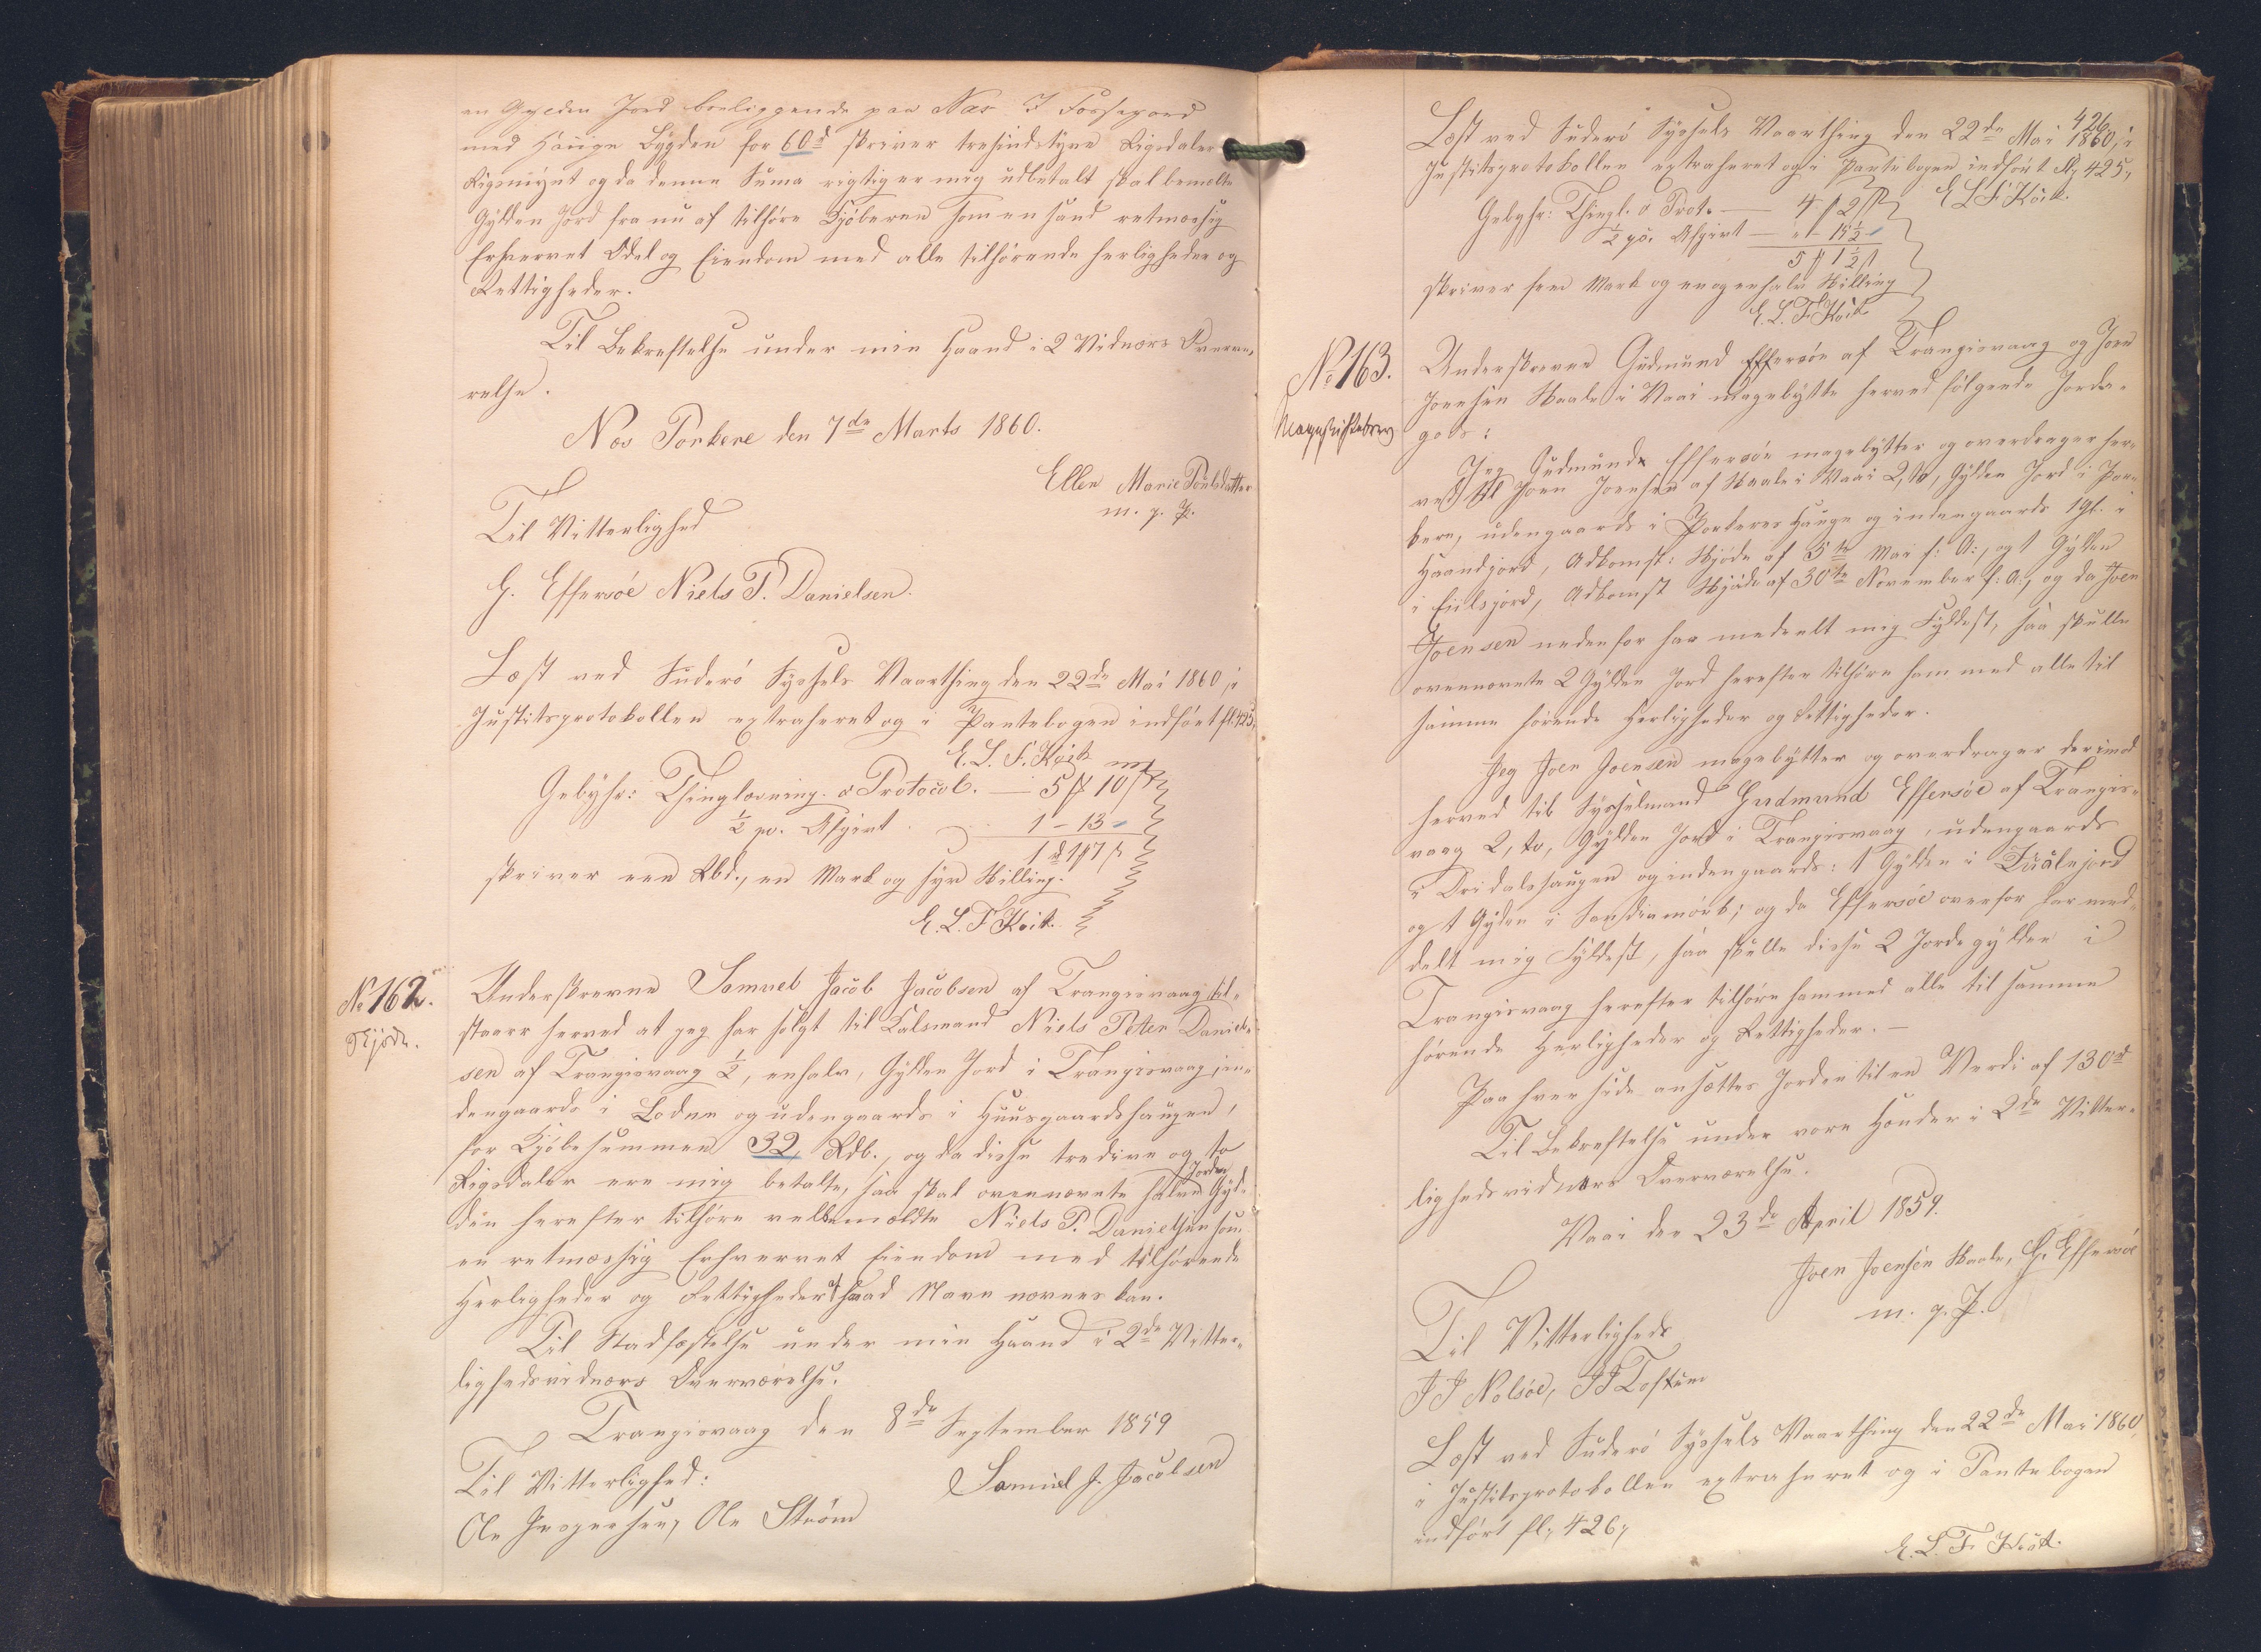 en Gylden Jord beliggende paa Næs I Fossegord
med Hauge Bygden for 60d skriver tresindstyve Rigsdaler
Rigsmynt og da denne Suma rigtig er mig udbetalt skal bemelte
Gylden Jord fra nu af tilhøre Kjøberen som en sand retmæssig
Erhvervet Odel og Eiendom med alle tilhørende herligheder og
Rettigheder.
Til Bekreftelse under min Haand i 2 Vidners Overvæ-
relse.
Næs Porkere den 7de Marts 1860.
Ellen Marie Poulsdatter
m. p. P.
Til Vitterlighed
G. Effersöe Niels P. Danielsen.
Læst ved Suderö Syssels Vaarthing den 22de Mai 1860, i
Justitsprotokollen extraheret og i Pantebogen indført fl. 425,
E. L. F. Koit
Gebyhr: Thinglæsning o Protocol. — 5 10
½ pc. Afgivt 1 - 13
1 1 7
skriver een Rbd., en Mark og syv Skilling.
E. L. F. Koit.
No 162.
Skjöde.
Underskrevne Samuel Jacob Jacobsen af Trangisvaag til-
staaer herved at jeg har solgt til Kalsmand Niels Peter Daniel-
sen af Trangisvaag ½, enhalv, Gylden Jord i Trangisvaag, in-
dengaards i Lodne og udengaards i Huusgaardshaugen,
for Kjöbesummen 32 Rdb., og da disse tredive og to
Rigsdaler ere mig betalte, saa skal ovennævnte halve Jordes Gyl-
den herefter tilhøre velbemældte Niels P. Danielsen som
en retmæssig Erhvervet Eiendom med tilhørende
Herligheder og Rettigheder af hvad Navn nævnes kan.
Til Stadfæstelse under min Haand i 2de Vitter-
lighedsvidners Overværelse.
Trangisvaag den 8de September 1859
Til Vitterlighed:
Samuel J. Jacobsen
Ole Jespersen, Ole Ström
426
Læst ved Suderö Syssels Vaarthing den 22de Mai 1860, i
Justitsprotokollen extraheret og i Pantebogen indført fl. 425,
E L F Koit.
Gebyhr: Thingl. o Prot. — 4 2
½ pc. Afgivt — " - 15½
5 1½
skriver fem Mark og en og enhalv Skilling
E. L. F. Koit
No 163.
Mageskiftebrev
Underskrevne Gudmund Effersöe af Trangisvaag og Joen
Joensen Skaale i Vaai magebytte herved følgende Jorde-
gods:
Jeg Gudmund Effersöe magebytter og overdrager her-
ved til Joen Joensen af Skaale i Vaai 2, to, Gylden Jord i Por-
kere, udengaards i Porkeres Hauge og indengaards 1 gl. i
Haandjord, Adkomst: Skjöde af 5te Mai f: A:, og 1 Gylden
i Eilsjord, Adkomst Skjöde af 30te November f: A:, og da Joen
Joensen nedenfor har meddelt mig Fyldest, saa skulle
ovennævnte 2 Gylden Jord herefter tilhøre ham med alle til
samme hørende Herligheder og Rettigheder.
Jeg Joen Joensen magebytter og overdrager derimod
herved til Sysselmand Gudmund Effersöe af Trangis-
vaag 2, to, Gylden Jord i Trangisvaag, udengaards
i Oridalshaugen og indengaards: 1 Gylden i Tuålejord
og 1 Gylden i Sandiamörk; og da Effersöe ovenfor har med-
delt mig Fyldest, saa skulle disse 2 Jordegylden i
Trangisvaag herefter tilhøre ham med alle til samme
hørende Herligheder og Rettigheder. —
Paa hver Side ansættes Jorden til en Verdi af 130d
Til Bekreftelse under vore Hænder i 2de Vitter-
lighedsvidners Overværelse.
Vaai den 23de April 1859.
Joen Joensen Skaale, G. Effersöe
m. p. P.
Til Vitterligheds
J J Nolsöe, J J Toftum
Læst ved Suderö Syssels Vaarthing den 22de Mai 1860,
i Justitsprotokollen extraheret og i Pantebogen
indført fl. 426,
E. L. F. Koit.